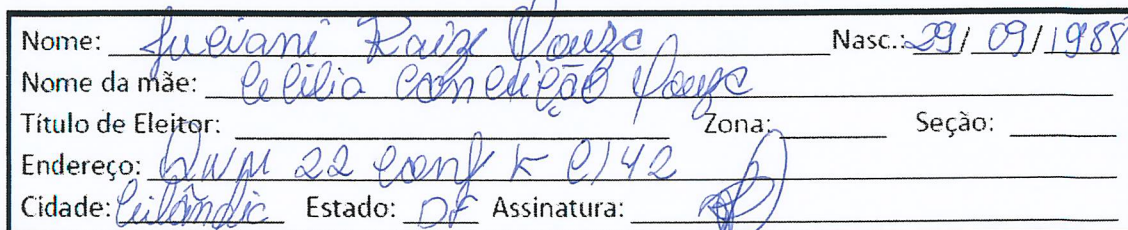 Nome: Juciani Raize Souza Nasc.: 29/09/1988
Nome da mãe: Cecilia Conceição Souza
Título de Eleitor: Zona: Seção:
Endereço: QNM 22 Conj K C/42
Cidade: Ceilândia Estado: DF Assinatura: